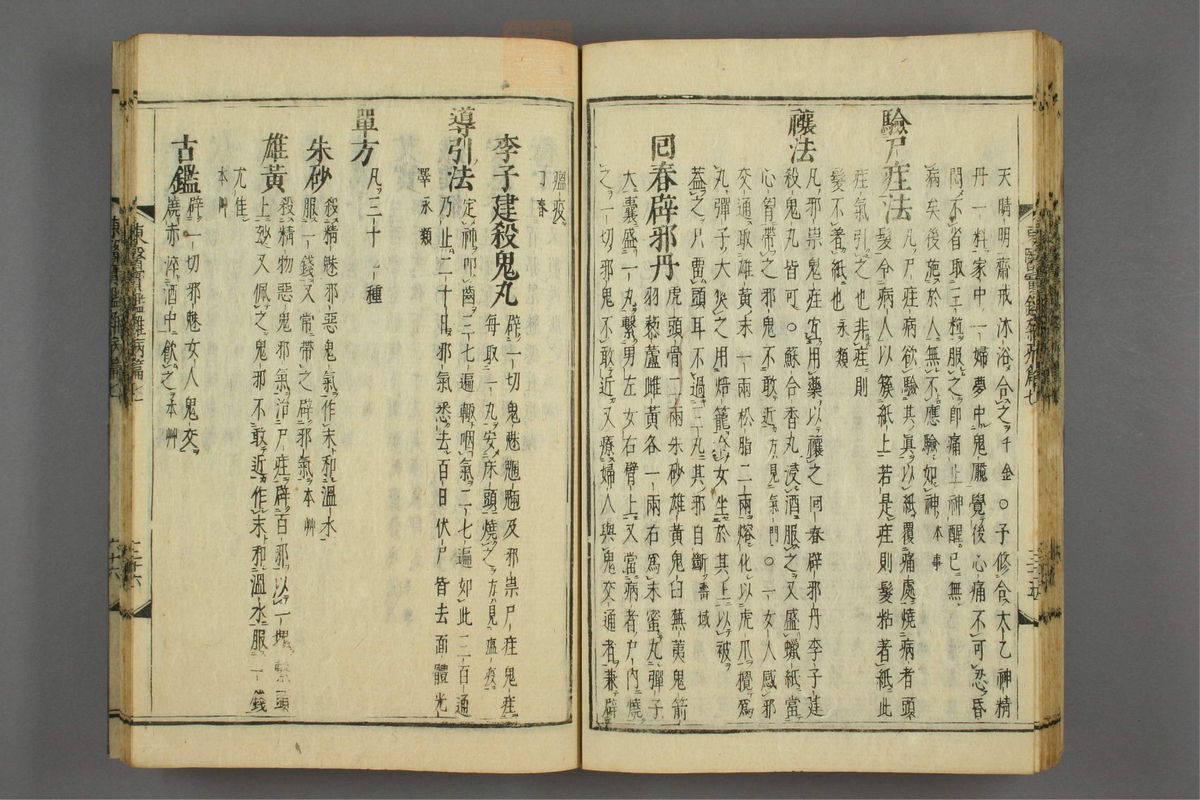 天晴明齋戒沐浴合之千金○子修合太乙神精
丹一料家中一婦夢中鬼魘覺後心痛不可忍昏
悶不省取三粒服之卽痛止神醒已無
病矣後施於人無不應驗如神本事
驗尸疰法
凡尸疰病欲驗其眞以紙覆痛處燒病者頭
髮令病人以簇紙上若是疰則髮粘著紙此
疰氣引之也非疰則
髮不著紙也永類
禳法
凡邪祟鬼疰宜用藥以禳之回春辟邪丹李子建
殺鬼丸皆可○蘇合香丸浸酒服之又盛蠟紙當
心胷帶之邪鬼不敢近方見氣門○一女人感邪
交通取雄黃末一兩松脂二兩熔化以虎爪攪爲
丸彈子大夜焚之用焙籠令女坐於其上以被
蓋之只露頭耳不過三丸其邪自斷壽域
回春辟邪丹
虎頭骨二兩朱砂雄黃鬼臼蕪荑鬼箭
羽藜蘆雌黃各一兩右爲末蜜丸彈子
大囊盛一丸繫男左女右臂上又當病者戶內燒
之一切邪鬼不敢近又療婦人與鬼交通者兼辟
瘟疫
回春
李子建殺鬼丸
辟一切鬼魅魍魎及邪祟尸疰鬼疰
每取一丸安床頭燒之方見瘟疫
導引法
定神叩齒二七遍輒咽氣二七遍如此三百通
乃止二十日邪氣悉去百日伏尸皆去面體光
澤永類
單方
凡三十一種
朱砂
殺精魅邪惡鬼氣作末和溫水
服一錢又常帶之辟邪氣本艸
雄黃
殺精物惡鬼邪氣治尸疰辟百邪以一塊繫頭
上玅又佩之鬼邪不敢近作末和溫水服一錢
尤佳
本艸
古鑑
辟一切邪魅女人鬼交
燒赤淬酒中飮之本艸
東醫寶鑑雜病篇七
三十六